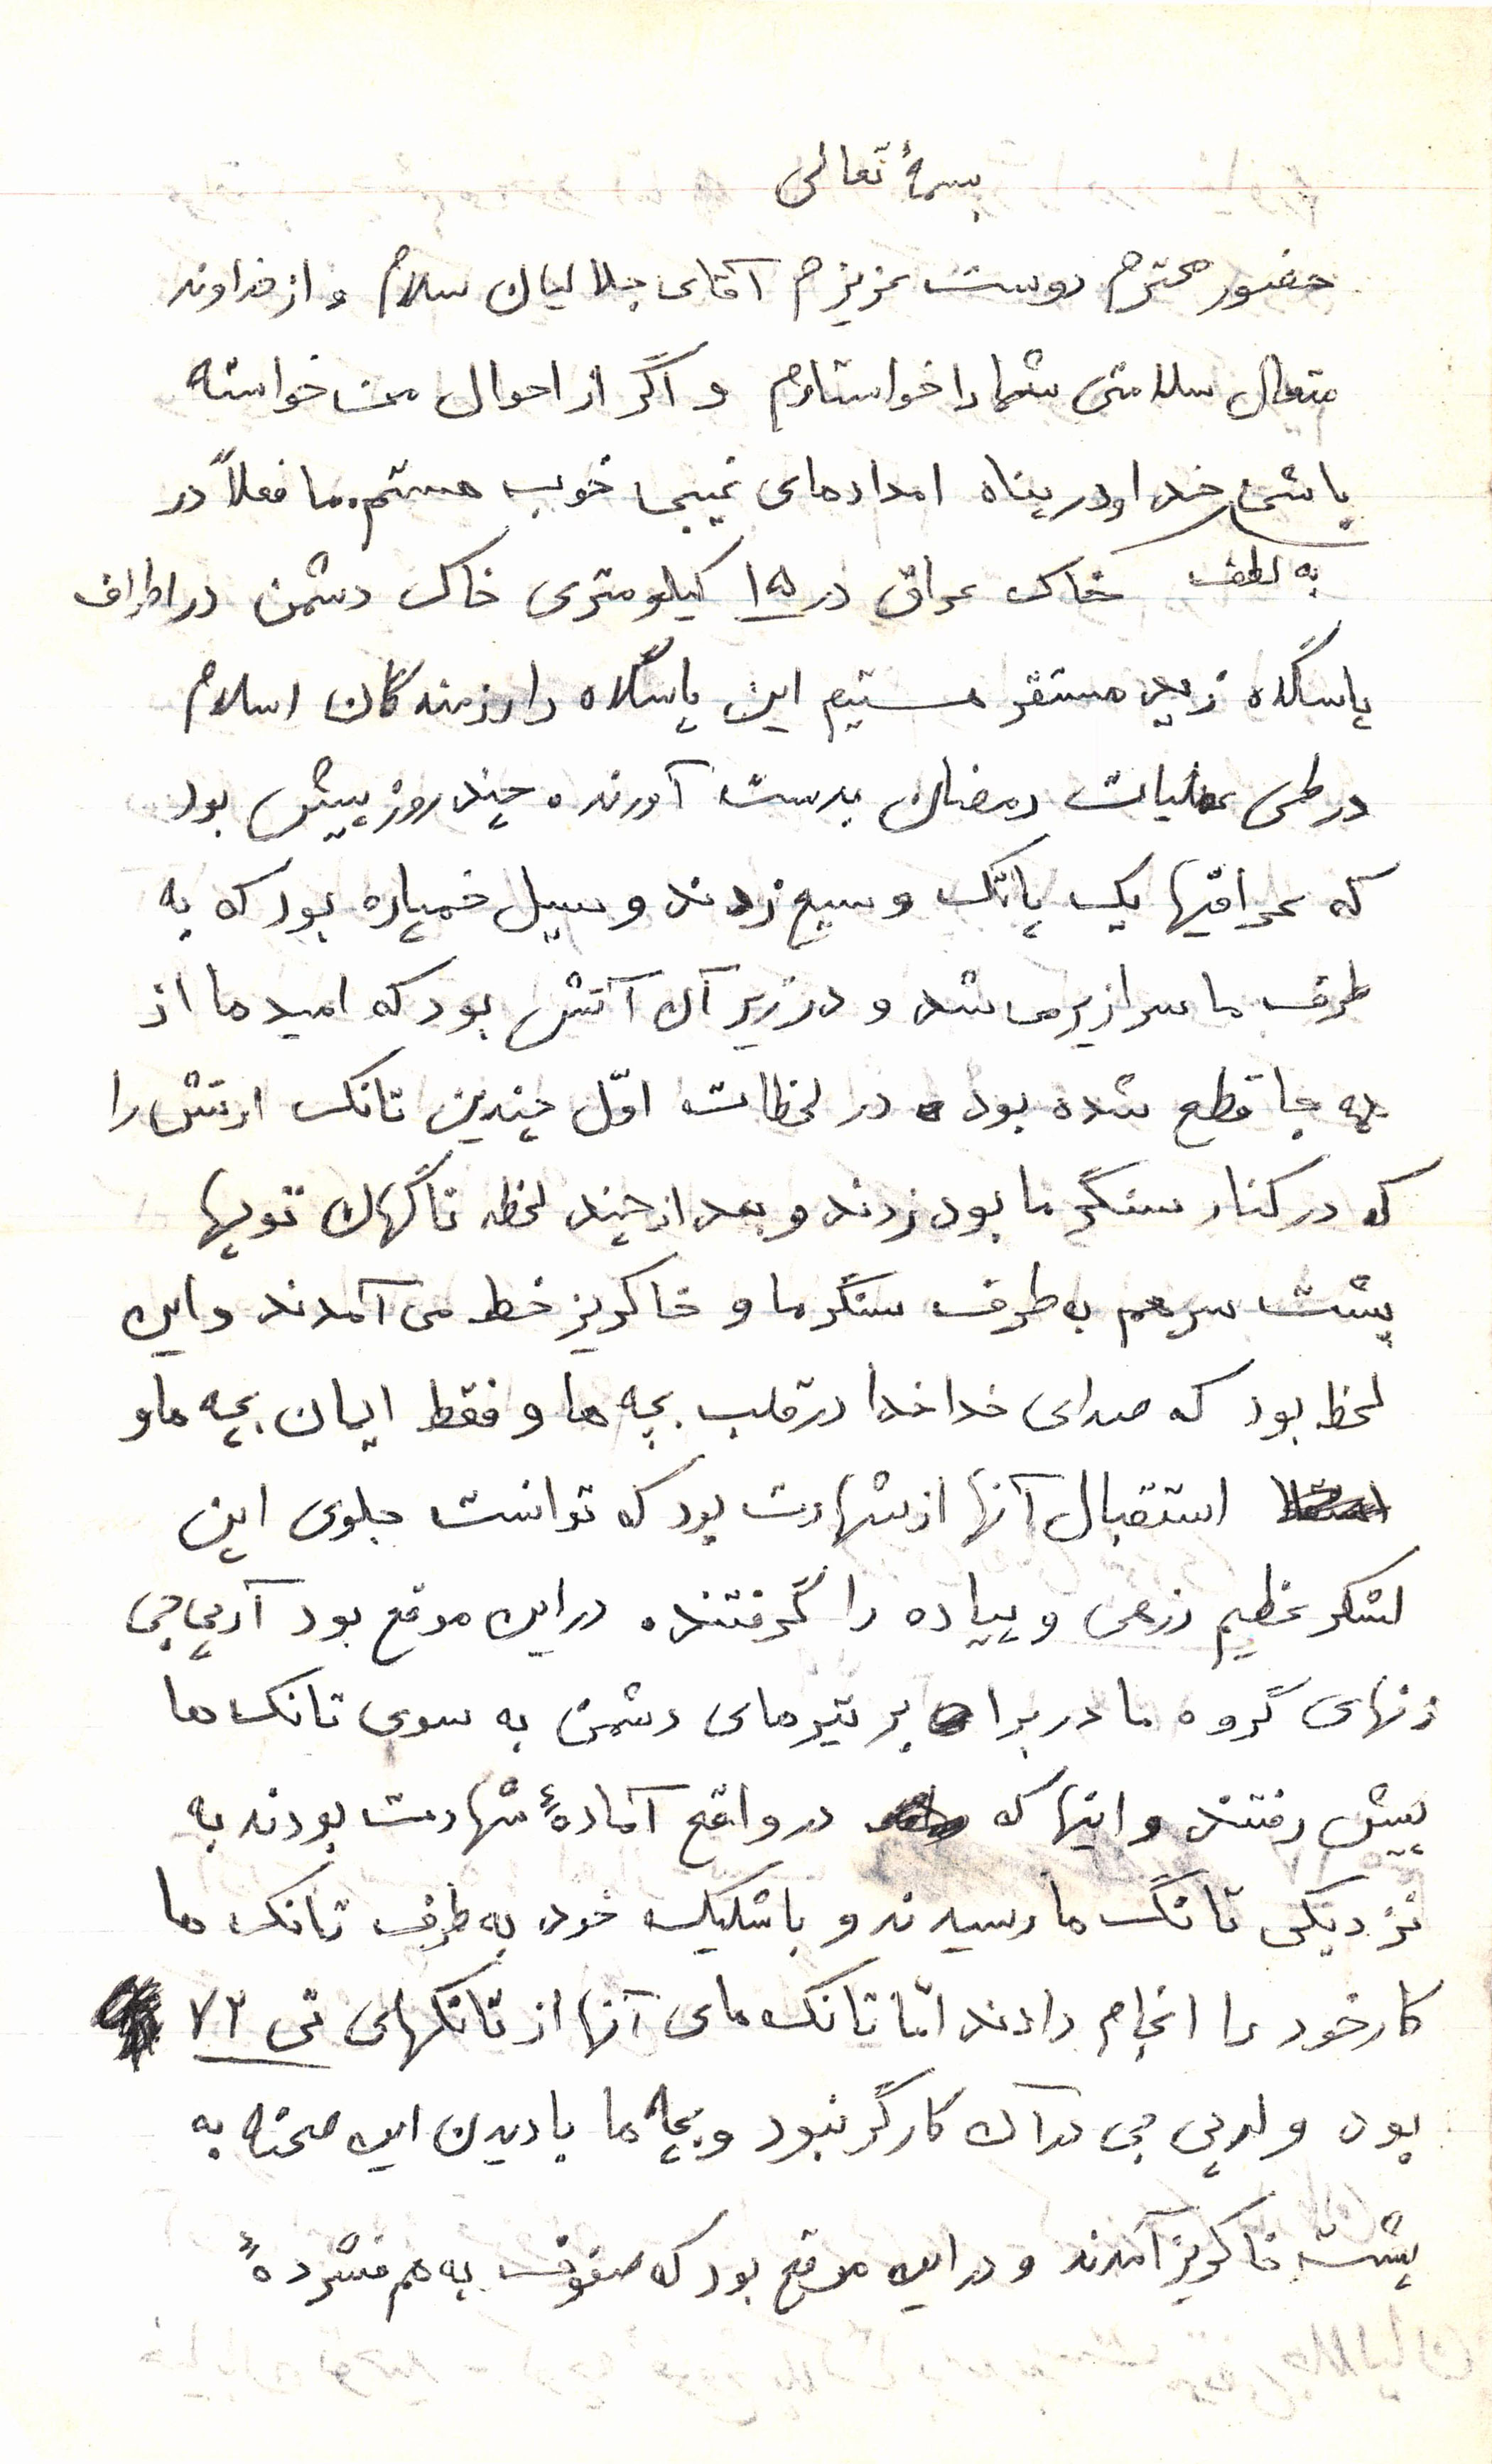 بسمهٔ تعالی
حضور محترم دوست عزیزم آقای جلالیان سلام و از خداوند
متعال سلامتی شما را خواستارم و اگر از احوال من خواسته
باشی خدا و در پناه امدادهای غیبی خوب هستم. ما فعلاً در
به لطف خاک عراق در ۱۵ کیلومتری خاک دشمن در اطراف
پاسگاه زید مستقر هستیم این پاسگاه را رزمندگان اسلام
در طی عملیات رمضان بدست آورند. چند روز پیش بود
که عراقیها یک پاتک وسیع زدند و سیل خمپاره بود که به
طرف ما سرازیر می شد و در زیر آن آتش بود که امید ما از
همه جا قطع شده بود. در لحظات اوّل چندین تانک ارتش را
که در کنار سنگر ما بود زدند و بعد از چند لحظه ناگهان توپها
پشت سر هم به طرف سنگر ما و خاکریز خط می آمدند و این
لحظه بود که صدای خدا خدا در قلب بچه ها و فقط ایمان بچه ها و
استقبال آنها از شهادت بود که توانست جلوی این
لشکر عظیم زرهی و پیاده را گرفتند. در این موقع بود آرپی جی
زنهای گروه ما در برابر تیرهای دشمن به سوی تانک ها
پیش رفتند و اینها که در واقع آمادهٔ شهادت بودند به
نزدیکی تانگ ها رسیدند و با شلیک خود به طرف تانک ها
کار خود را انجام دادند امّا تانک های آنها از تانکهای تی ۷۲
بود و آرپی جی در آن کارگر نبود و بچه ها با دیدن این صحنه به
پشت خاکریز آمدند و در این موقع بود که صفوف به هم فشردهٔ